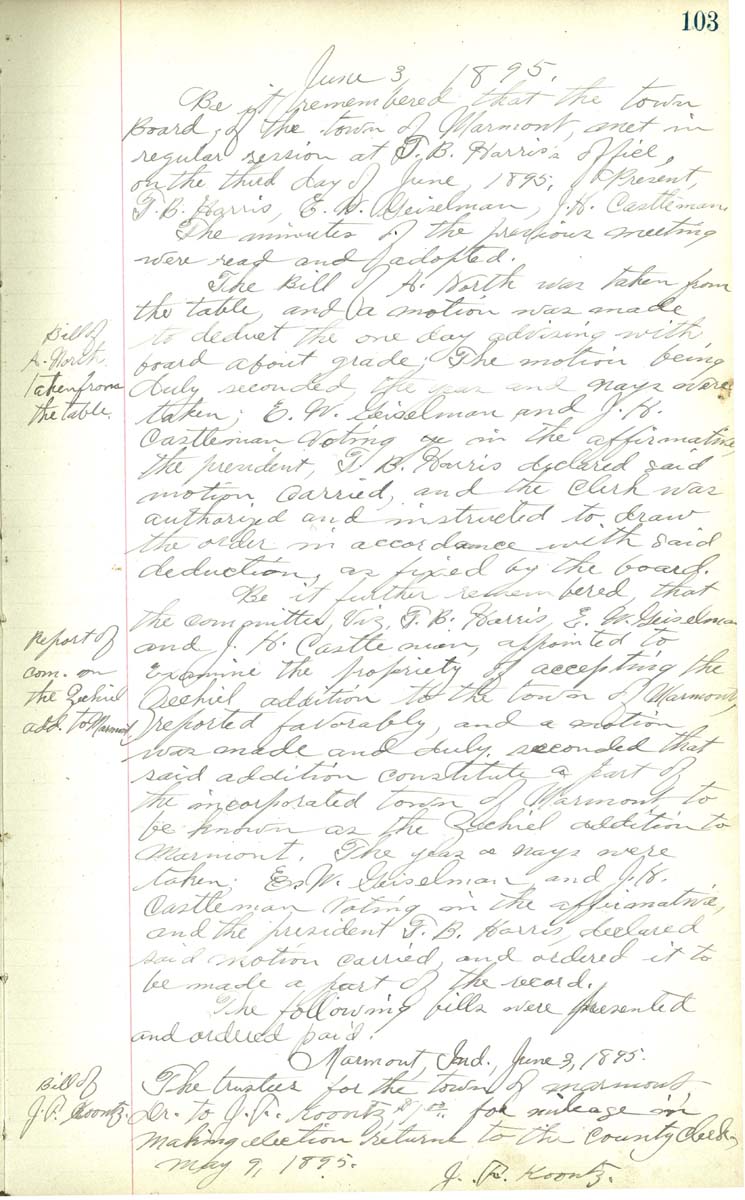 103
June 3, 1895.
Be it remembered that the town
Board, of the town of Marmont, met in
regular session at T. B. Harris's office,
on the third day of June 1895, Present,
T. B. Harris, E. W. Geiselman, J. H. Castleman.
The minutes of the previous meeting
were read and adopted.
The Bill of A. North was taken from
the table, and a motion was made
to deduct the one day advising with
board about grade; The motion being
duly seconded, the yeas and nays were
taken; E. W. Geiselman and J. H.
Castleman voting in the affirmative,
the president, T. B. Harris declared said
motion carried, and the clerk was
authorized and instructed to draw
the order in accordance with said
deduction, as fixed by the board.
Bill of
A. North
taken from
the table.
Be it further remembered, that
the committee, Viz, T. B. Harris, E. W. Geiselman
and J. H. Castleman, appointed to
examine the propriety of accepting the
Zechiel addition to the town of Marmont,
reported favorably, and a motion
was made and duly seconded that
said addition constitute a part of
the incorporated town of Marmont, to
be known as the Zechiel addition to
Marmont. The yeas & nays were
taken; E. W. Geiselman and J. H.
Castleman voting in the affirmative,
and the president T. B. Harris, declared
said motion carried, and ordered it to
be made a part of the record.
Report of
com. on
the Zechiel
add. to Marmont.
The following bills were presented
and ordered paid.
Marmont, Ind., June 3, 1895.
The trustees for the town of Marmont,
Dr. to J. F. Koontz, for mileage in
making election returns to the County Clerk,
May 9, 1895.
J. F. Koontz.
Bill of
J. F. Koontz.